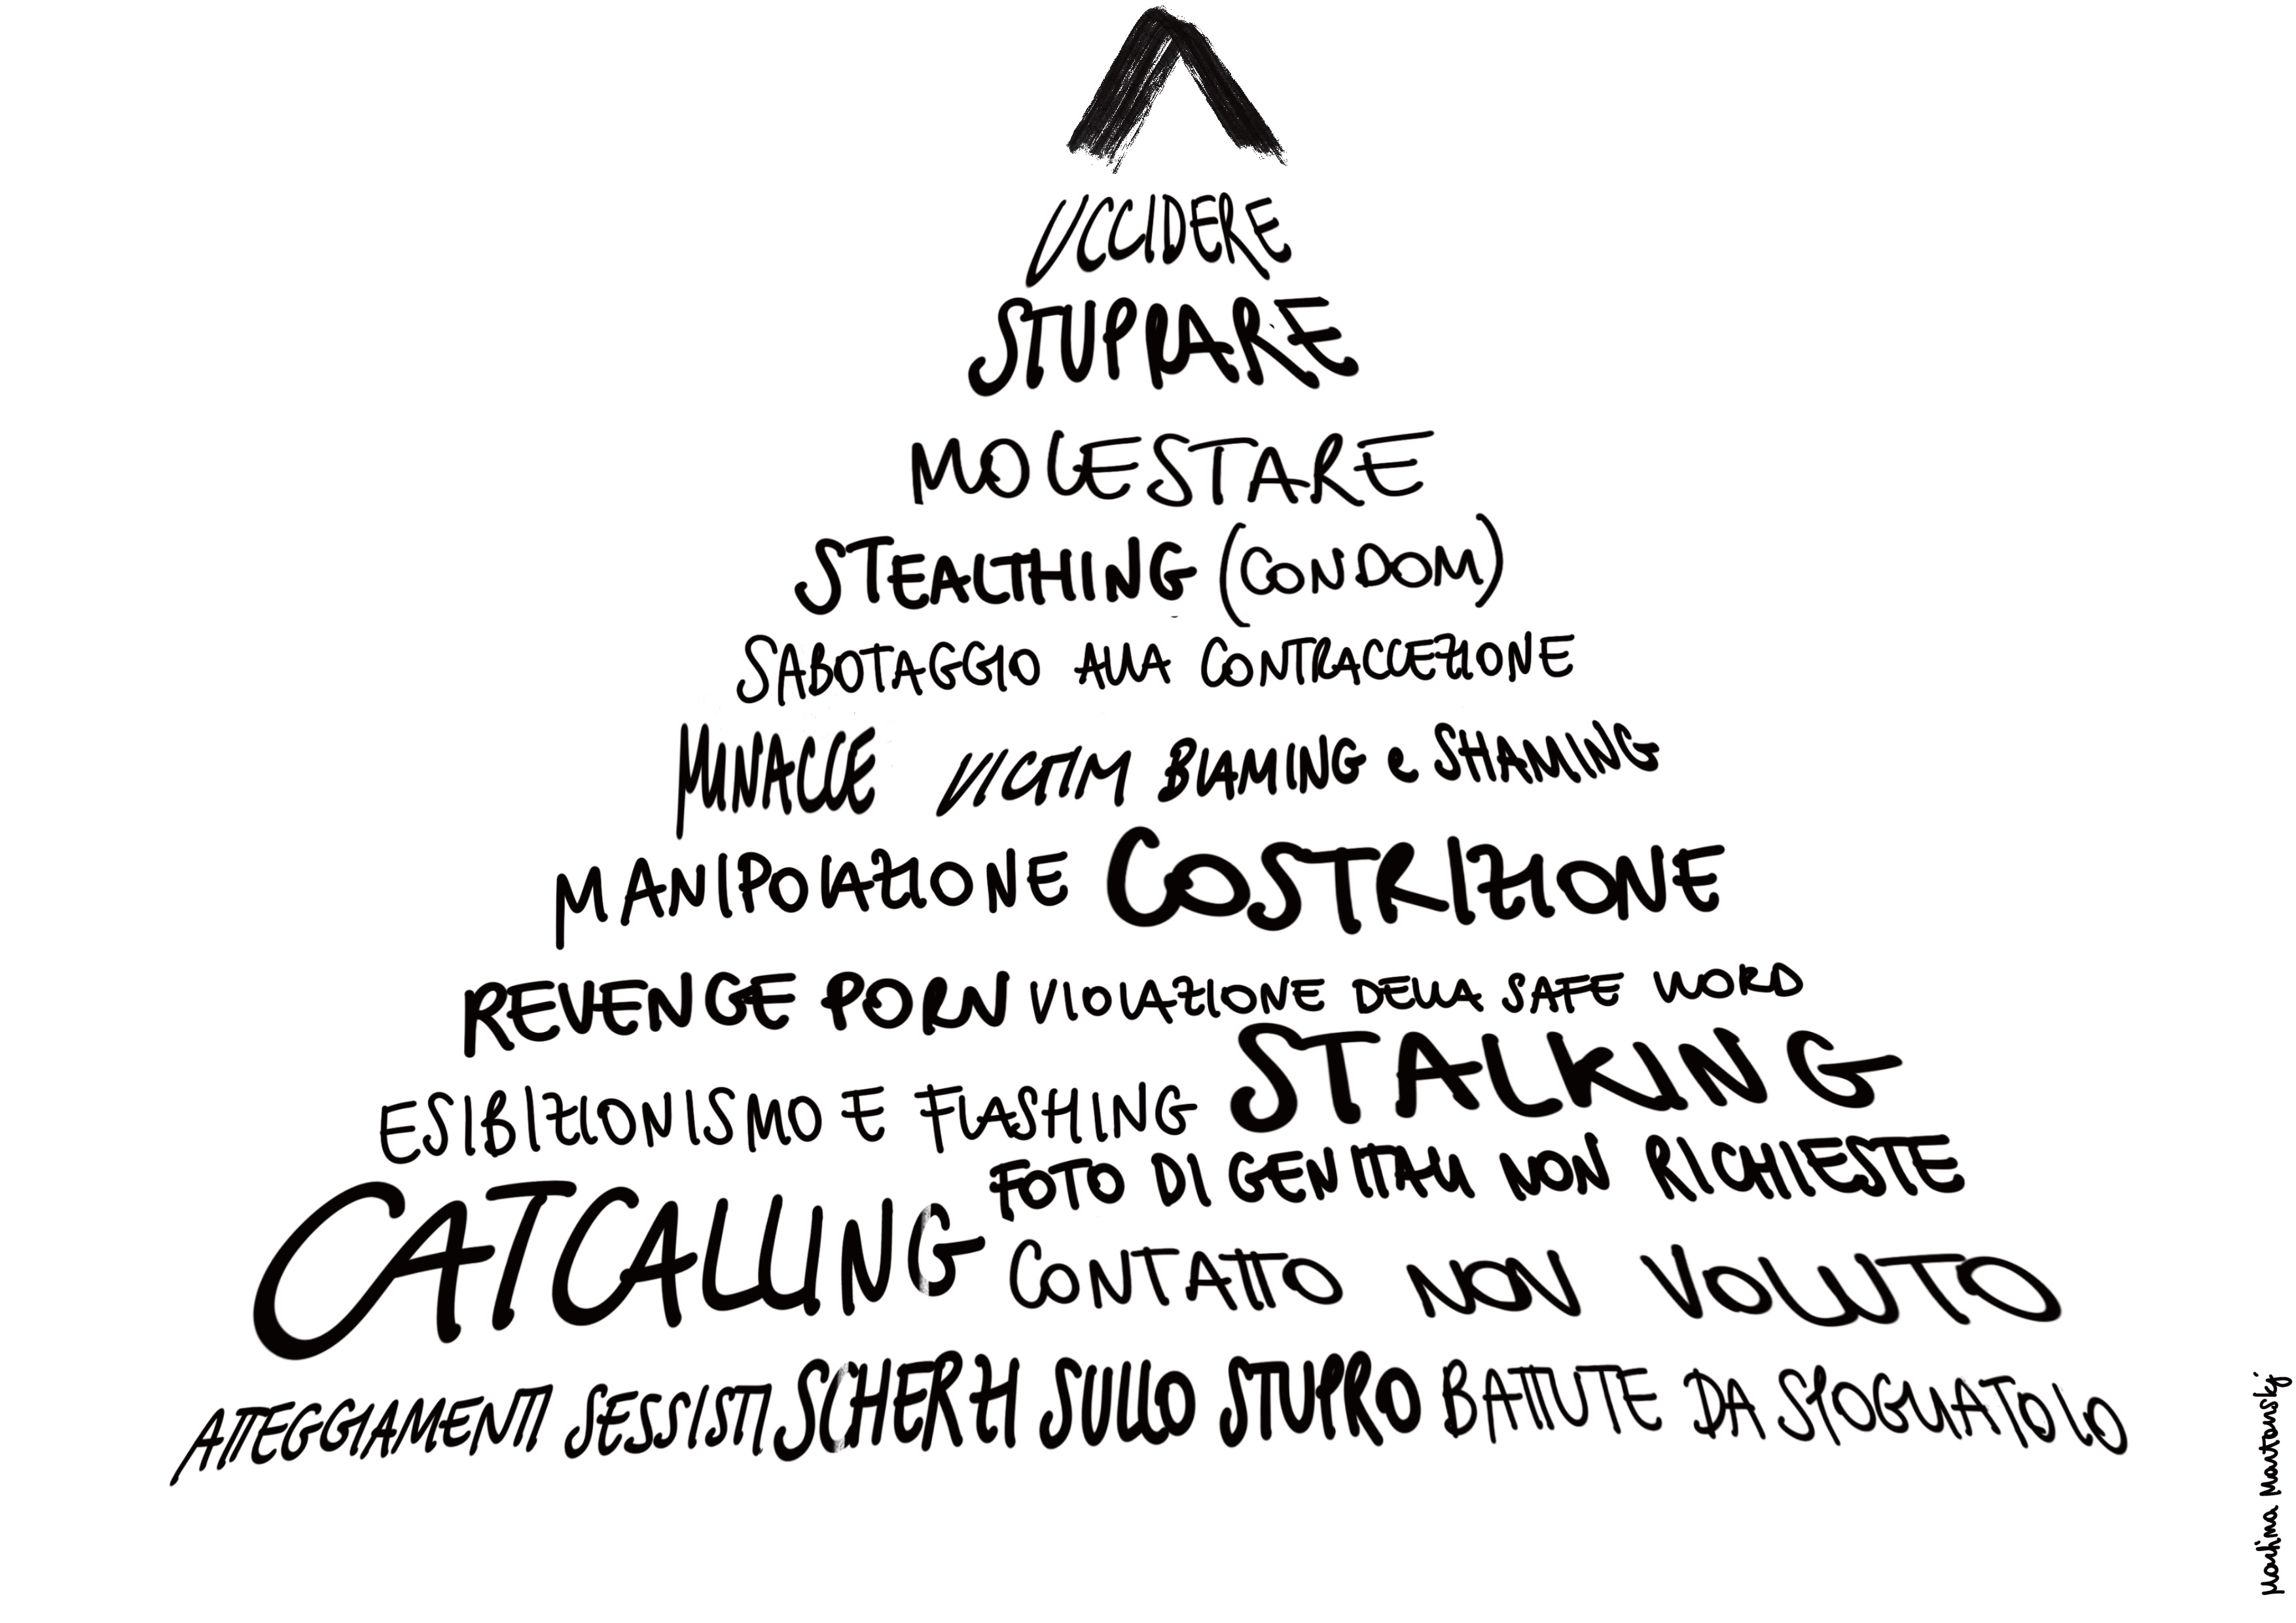 UCCIDERE
STUPRARE
MOLESTARE
STEALTHING (CONDOM)
SABOTAGGIO ALLA CONTRACCEZIONE
MINACCE VICTIM BLAMING e SHAMING
MANIPOLAZIONE COSTRIZIONE
REVENGE PORN VIOLAZIONE DELLA SAFE WORD
ESIBIZIONISMO E FLASHING STALKING
FOTO DI GENITALI NON RICHIESTE
CATCALLING CONTATTO NON VOLUTO
ATTEGGIAMENTI SESSISTI SCHERZI SULLO STUPRO BATTUTE DA SPOGLIATOIO
Martina Martonský